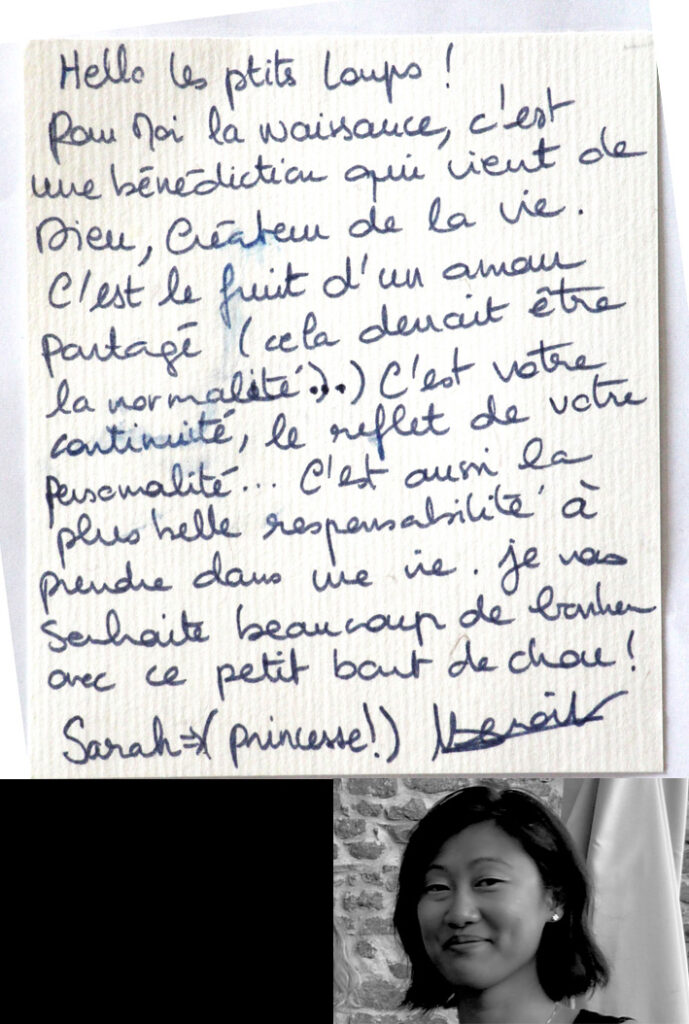 Hello les ptits Loups !
Pour Moi la naissance, c'est
une bénédiction qui vient de
Dieu, Créateur de la vie.
C'est le fruit d'un amour
partagé (cela devrait être
la normalité...) C'est votre
continuité, le reflet de votre
personnalité... C'est aussi la
plus belle responsabilité à
prendre dans une vie. je vous
souhaite beaucoup de bonheur
avec ce petit bout de chou !
Sarah => (princesse!) Benoît